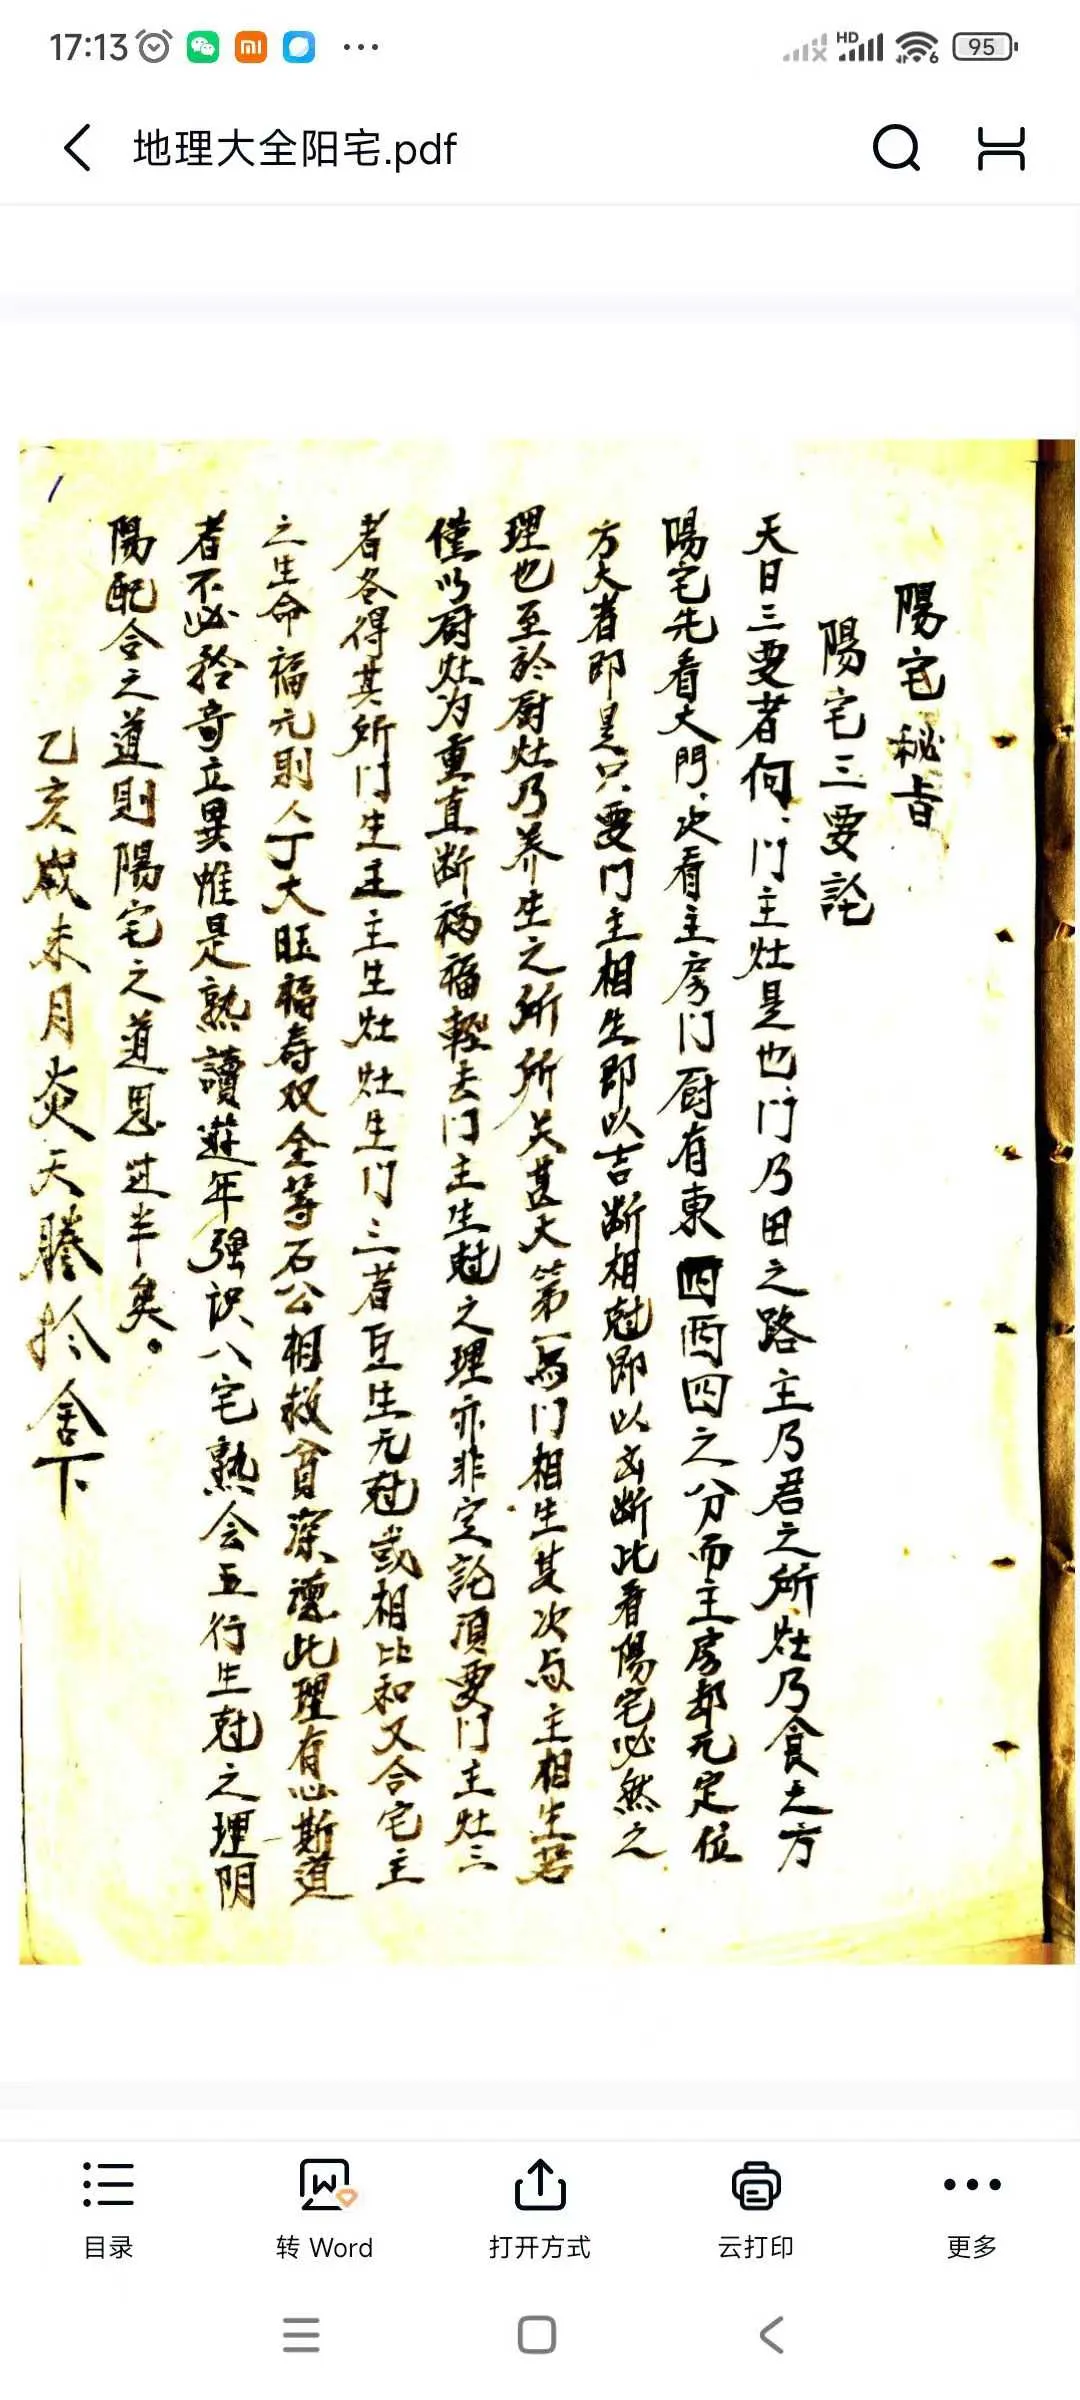 17:13 HD 6 95
地理大全阳宅.pdf
陽宅秘旨
陽宅三要論
天日三要者何、门主灶是也、门乃田之路主乃君之所灶乃食之方
陽宅先看大門、次看主房门厨有東四西四之分而主房却无定位
方大者即是只要门主相生即以吉断相尅即以凶断此看陽宅必然之
理也至於厨灶乃养生之所所关甚大第一与门相生其次与主相生若
僅以厨灶为重直断祸福輕去门主生尅之理亦非定論須要门主灶三
者各得其所门生主主生灶灶生门三者互生无尅或相比和又合宅主
之生命福元則人丁大旺福寿双全等石公相救貧深德此理有心斯道
者不必矜奇立異惟是熟讀遊年强识八宅熟会五行生尅之理阴
陽配合之道則陽宅之道思过半矣。
乙亥歲未月炎天謄於舍下
目录
转 Word
打开方式
云打印
更多